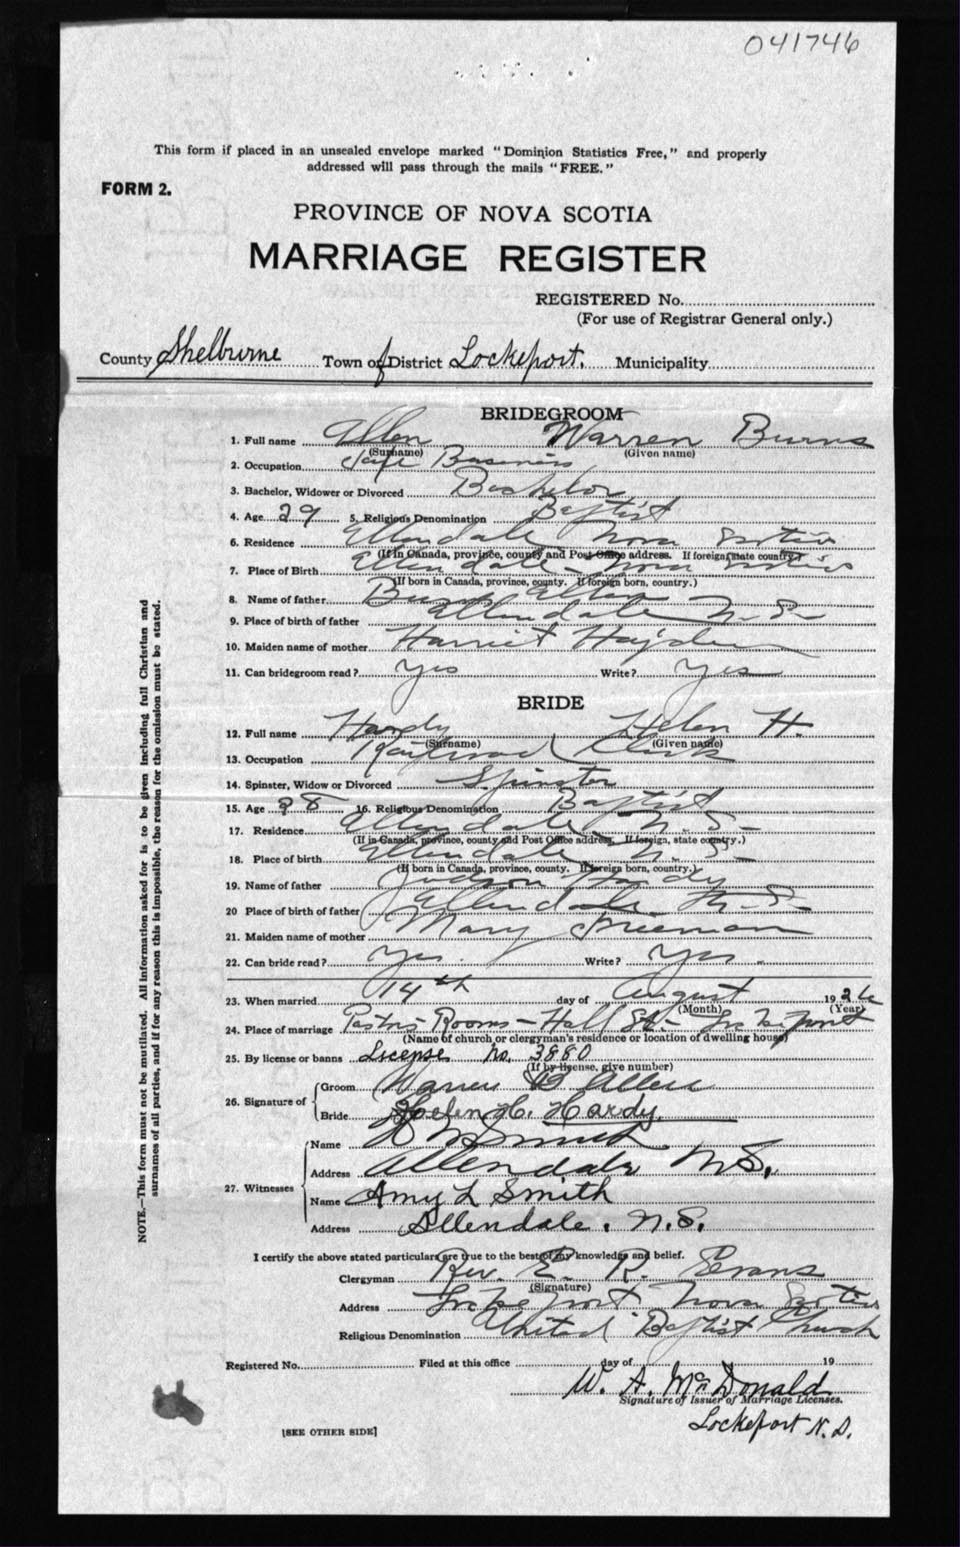 041746
This form if placed in an unsealed envelope marked "Dominion Statistics Free," and properly
addressed will pass through the mails "FREE."
FORM 2.
PROVINCE OF NOVA SCOTIA
MARRIAGE REGISTER
REGISTERED No.
(For use of Registrar General only.)
County Shelburne Town of District Lockeport. Municipality
BRIDEGROOM
1. Full name Allen Warren Burns
(Surname) (Given name)
2. Occupation Business
3. Bachelor, Widower or Divorced Bachelor
4. Age 29 5. Religious Denomination Baptist
6. Residence Allendale Nova Scotia
(If in Canada, province, county and Post Office address. If foreign, state country.)
7. Place of Birth Allendale - Nova Scotia
(If born in Canada, province, county. If foreign born, country.)
8. Name of father Allen
9. Place of birth of father Allendale N. S-
10. Maiden name of mother Harriet Hayden
11. Can bridegroom read? yes Write? yes
BRIDE
12. Full name Hardy Helen H.
(Surname) (Given name)
13. Occupation Railroad Clerk
14. Spinster, Widow or Divorced Spinster
15. Age 28 16. Religious Denomination Baptist
17. Residence Allendale N. S-
(If in Canada, province, county and Post Office address. If foreign, state country.)
18. Place of birth Allendale N. S-
(If born in Canada, province, county. If foreign born, country.)
19. Name of father Judson Hardy
20 Place of birth of father Allendale N. S-
21. Maiden name of mother Mary Freeman
22. Can bride read? yes. Write? yes.
23. When married 14th day of August 1926
(Month) (Year)
24. Place of marriage Pastor's Rooms - Hall St. - Lockeport
(Name of church or clergyman's residence or location of dwelling house)
25. By license or banns License No. 3880
(If by license, give number)
26. Signature of Groom Warren B Allen
Bride Helen H. Hardy.
27. Witnesses Name Smith
Address Allendale N.S.
Name Amy L Smith
Address Allendale. N.S.
I certify the above stated particulars are true to the best of my knowledge and belief.
Clergyman Rev. E. R. Evans
(Signature)
Address Lockeport Nova Scotia
Religious Denomination United Baptist Church
Registered No. Filed at this office day of 19
W. A. McDonald
Signature of Issuer of Marriage Licenses.
Lockeport N.S.
[SEE OTHER SIDE]
NOTE.—This form must not be mutilated. All information asked for is to be given including full Christian and
surnames of all parties, and if for any reason this is impossible, the reason for the omission must be stated.